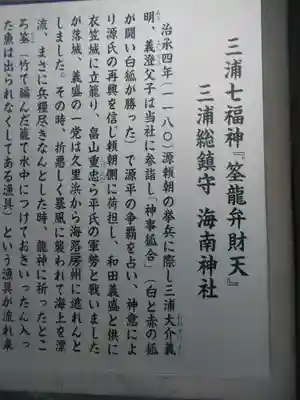 三浦七福神『筌龍弁財天』
三浦総鎮守 海南神社
治承四年(一一八〇)源頼朝の挙兵に際し三浦大介義
明、義澄父子は当社に参詣し「神事狐合」(白と赤の狐
が闘い白狐が勝った)で源平の争覇を占い、神意によ
り源氏の再興を信じ頼朝側に荷担し、和田義盛と供に
衣笠城に立籠り、畠山重忠ら平氏の軍勢と戦いました
が落城、義盛の一党は久里浜から海路房州に逃れんと
しました。その時、折悪しく暴風に襲われて海上を漂
流、まさに兵糧尽きなんとした時、龍神に祈ったとこ
ろ筌「竹で編んだ籠で水中につけておきいったん入っ
た魚は出られなくしてある漁具)という漁具が流れ来